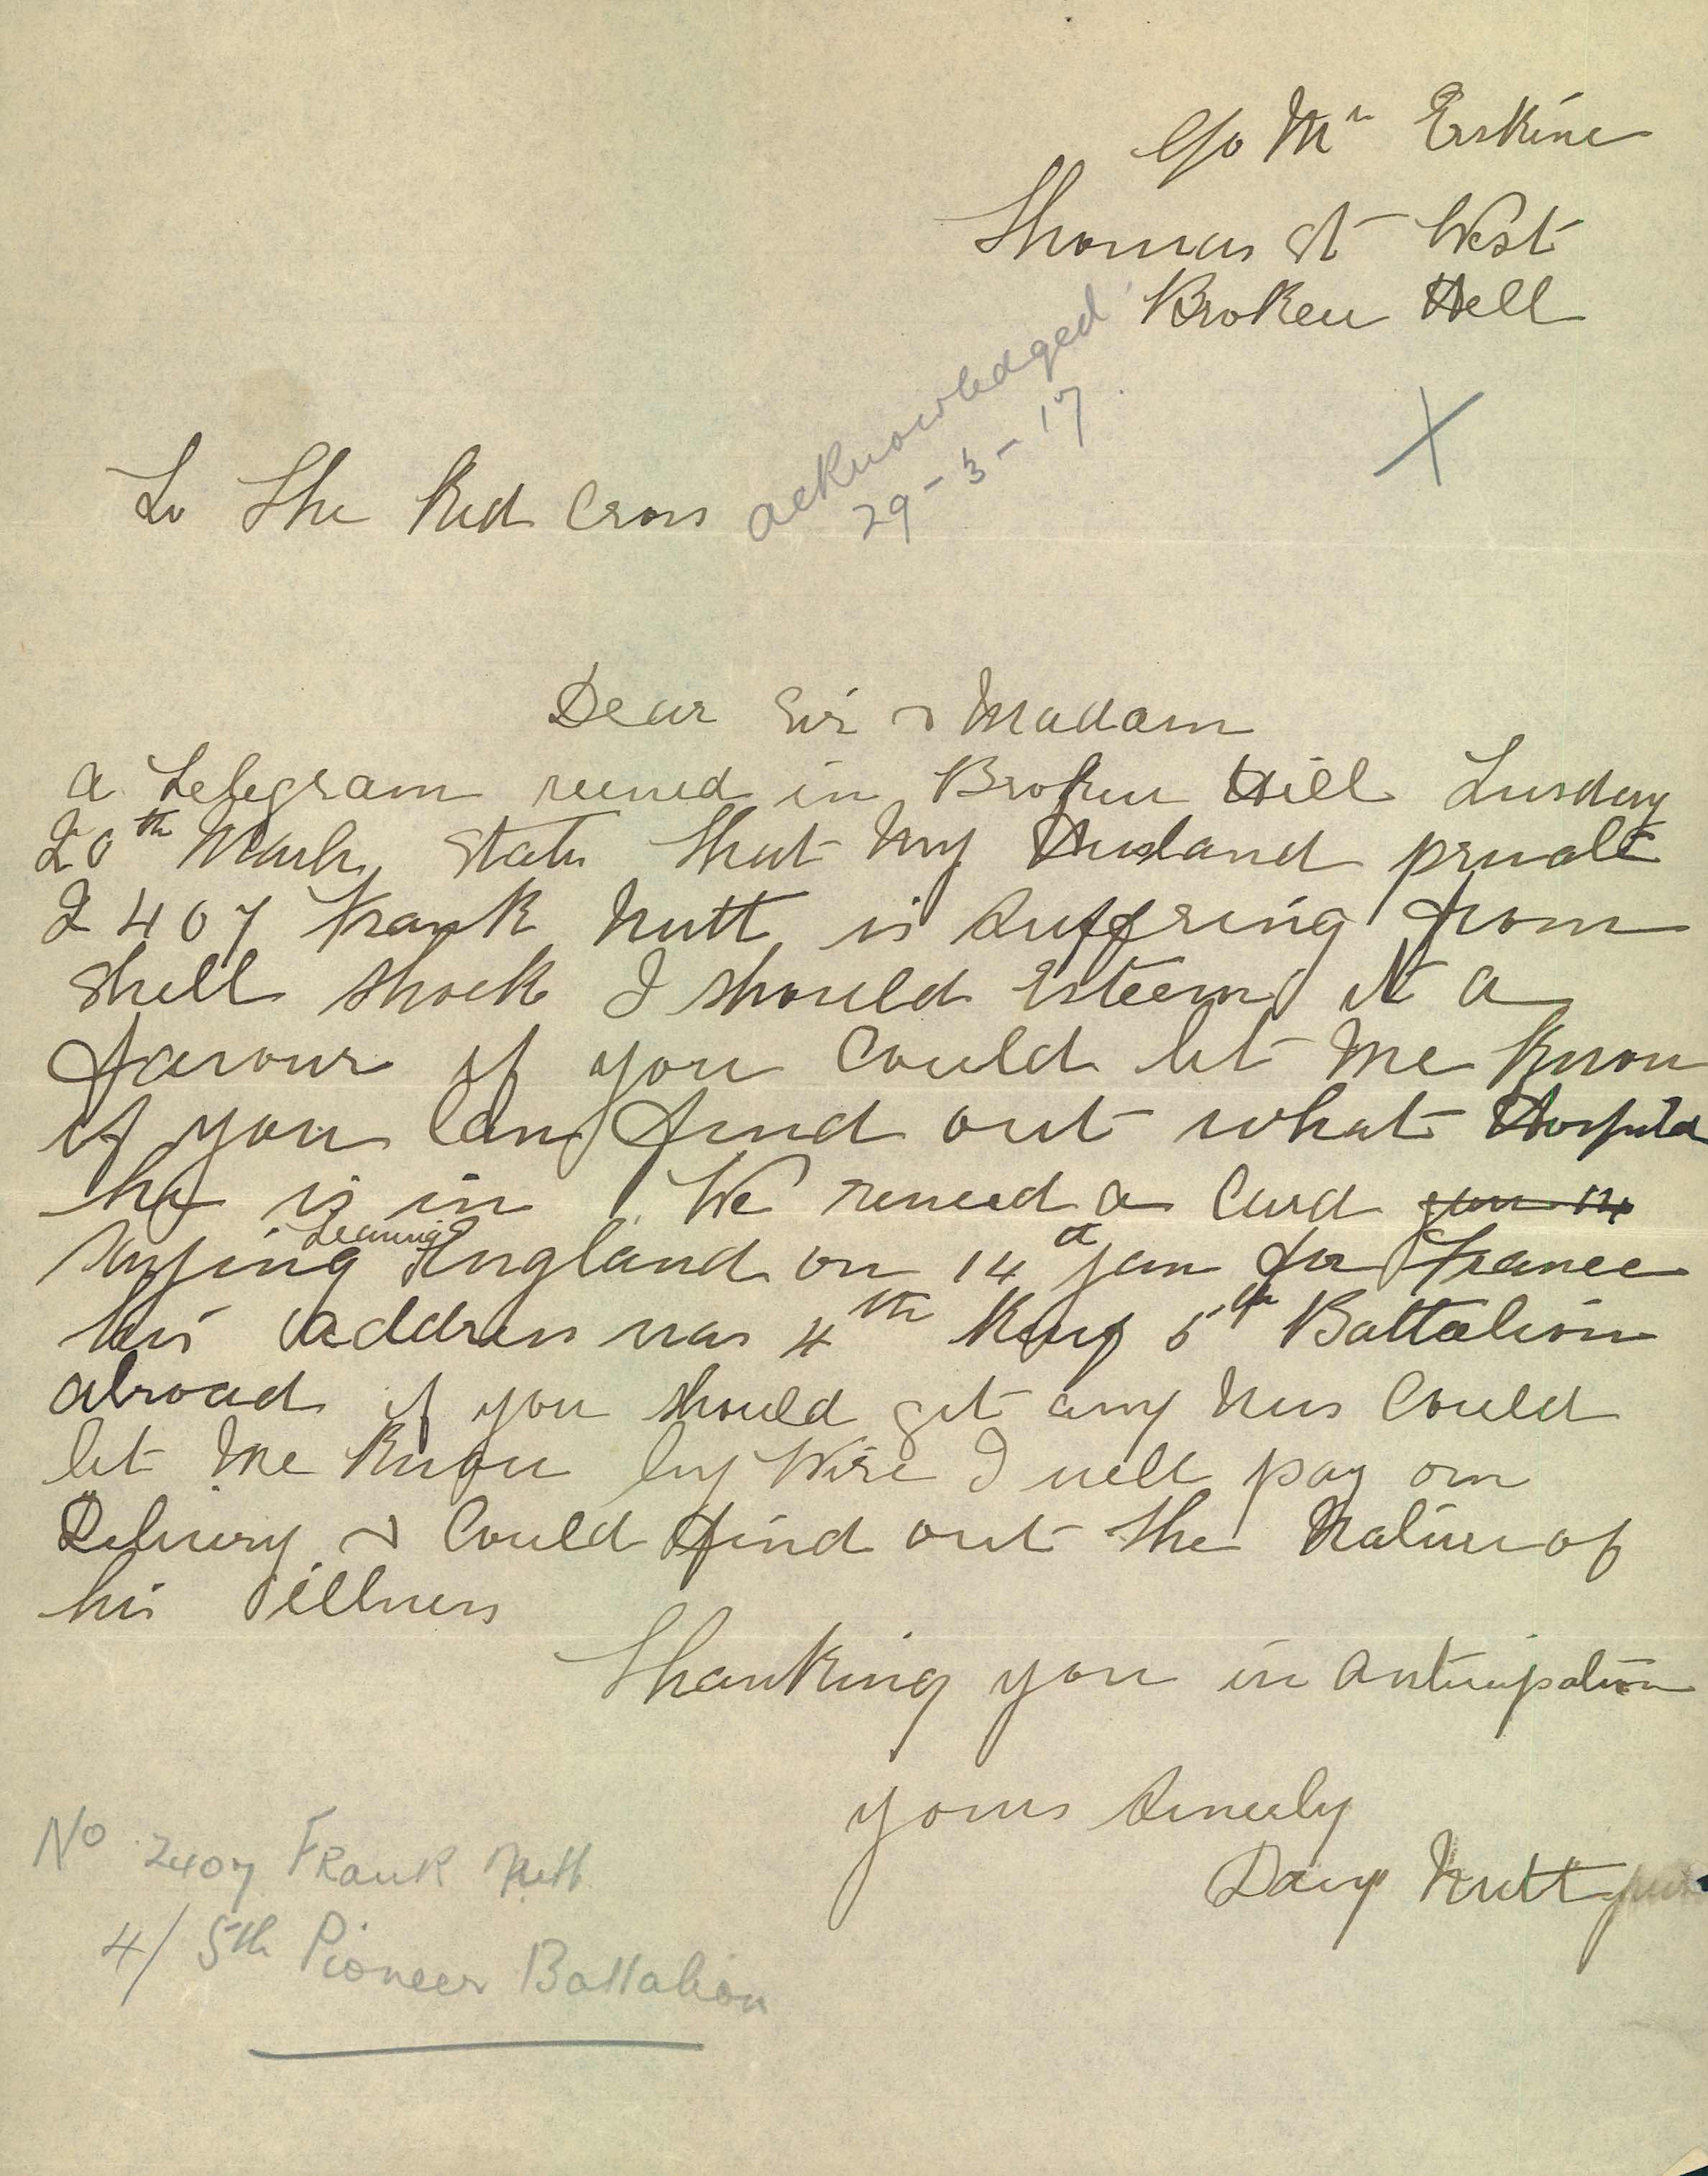 C/o Mr Erskine
Thomas St West
Broken Hill
acknowledged
29-3-17.
X
To The Red Cross
Dear Sir & Madam
a Telegram recived in Broken Hill Tusday
20th March, State that My Husband private
2407 Frank Nutt is Suffering from
Shell Shock I should Esteem it a
favour if you Could let Me Know
if you Can find out what Hospital
he is in We recieved a Card Jan 14
saying Leaving England on 14 Jan for France
his address was 4th 5th Battalion
abroad if you should get any News Could
let Me Know by Wire I will pay on
Delivery & Could find out the Nature of
his illness
Thanking you in anticipation
yours Sincerly
Nutt
No 2407 Frank Nutt
4/5th Pioneer Battalion